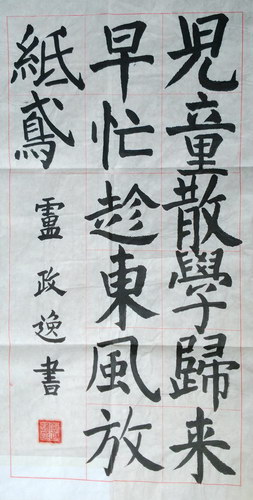 児童散學歸来
早忙趁東風放
紙鳶
盧政逸書